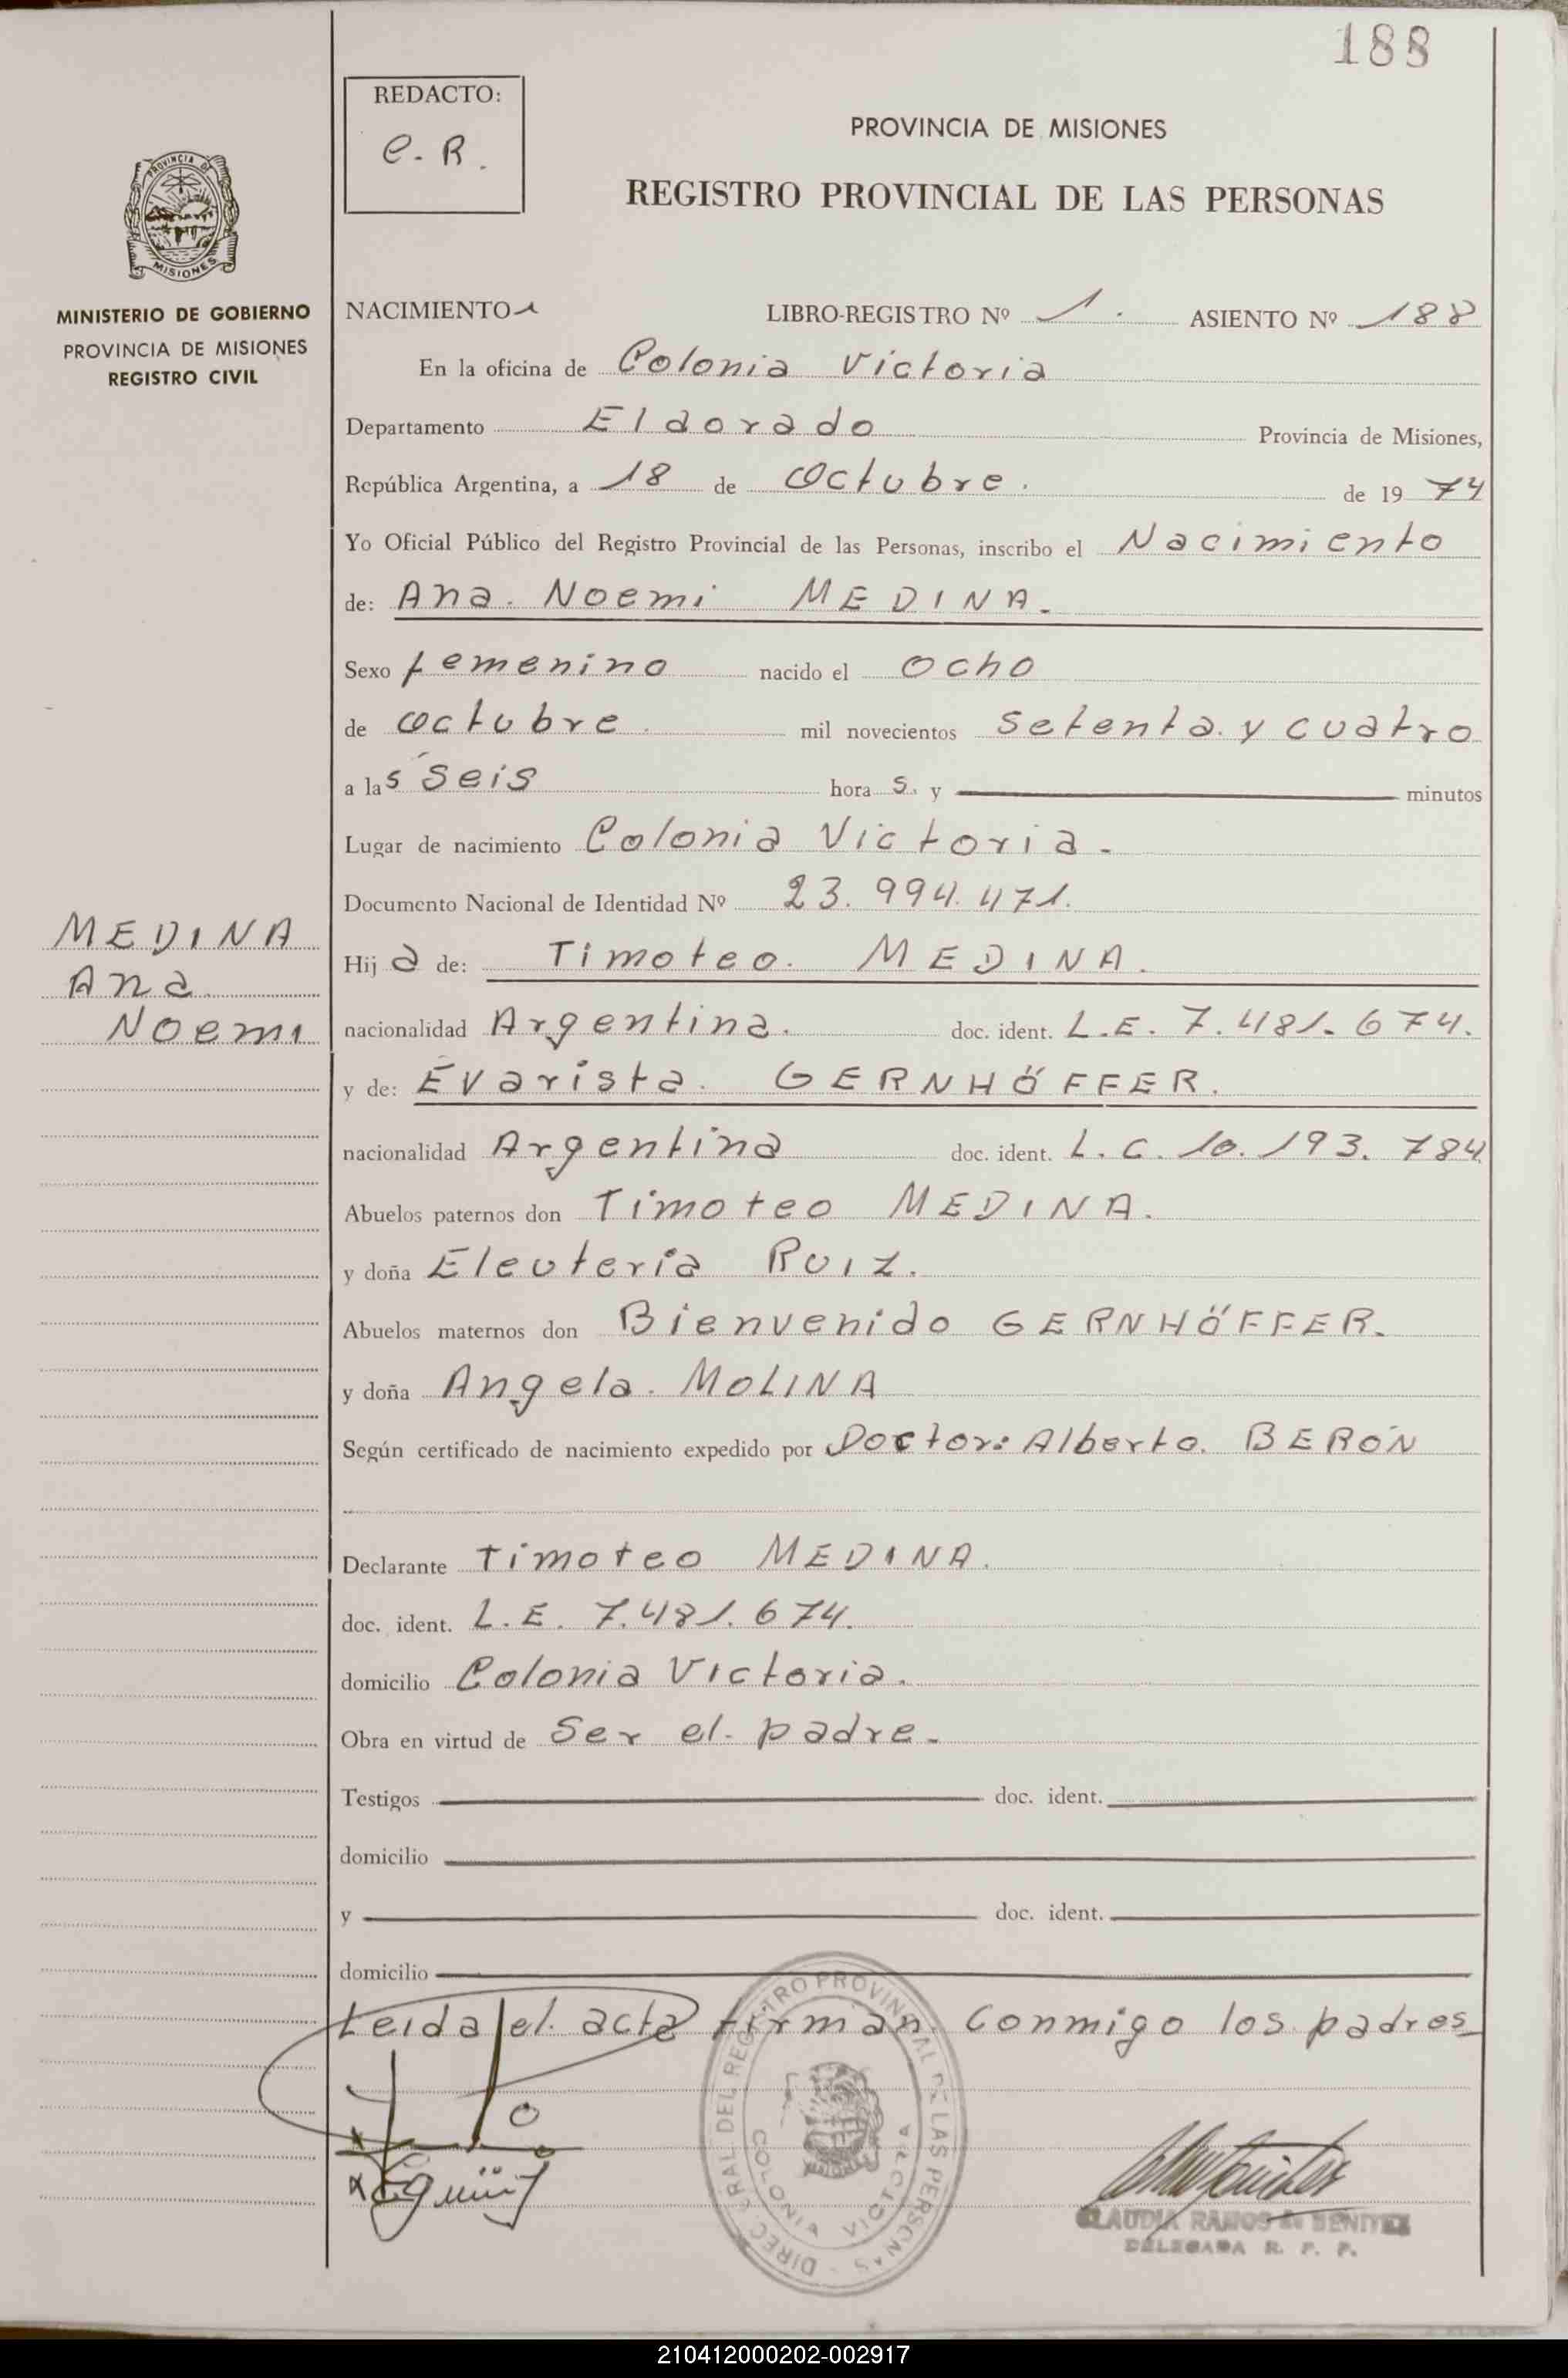 188
REDACTO:
C. R.
PROVINCIA DE MISIONES
REGISTRO PROVINCIAL DE LAS PERSONAS
PROVINCIA DE
MISIONES
MINISTERIO DE GOBIERNO
PROVINCIA DE MISIONES
REGISTRO CIVIL
NACIMIENTO LIBRO-REGISTRO Nº 1. ASIENTO Nº 188
En la oficina de Colonia Victoria
Departamento Eldorado Provincia de Misiones,
República Argentina, a 18 de Octubre. de 1974
Yo Oficial Público del Registro Provincial de las Personas, inscribo el Nacimiento
de: Ana. Noemi MEDINA.
Sexo femenino nacido el ocho
de octubre. mil novecientos setenta. y cuatro
a las seis horas. y minutos
Lugar de nacimiento Colonia Victoria.
Documento Nacional de Identidad Nº 23.994.471.
MEDINA
Ana
Noemi
Hija de: Timoteo. MEDINA.
nacionalidad Argentina. doc. ident. L.E. 7.481.674.
y de: Evarista. GERNHÖFFER.
nacionalidad Argentina doc. ident. L.C. 10.193.784
Abuelos paternos don Timoteo MEDINA.
y doña Eleuteria RUIZ.
Abuelos maternos don Bienvenido GERNHÖFFER.
y doña Angela. MOLINA
Según certificado de nacimiento expedido por Doctor: Alberto. BERÓN
Declarante Timoteo MEDINA.
doc. ident. L.E. 7.481.674.
domicilio Colonia Victoria.
Obra en virtud de Ser el. padre.
Testigos doc. ident.
domicilio
y doc. ident.
domicilio
Leida el. acta firman. conmigo los padres
DIREC. GRAL. DEL REGISTRO PROVINCIAL DE LAS PERSONAS
COLONIA VICTORIA
MISIONES
CLAUDIA RAMOS de BENITEZ
DELEGADA R. P. P.
210412000202-002917